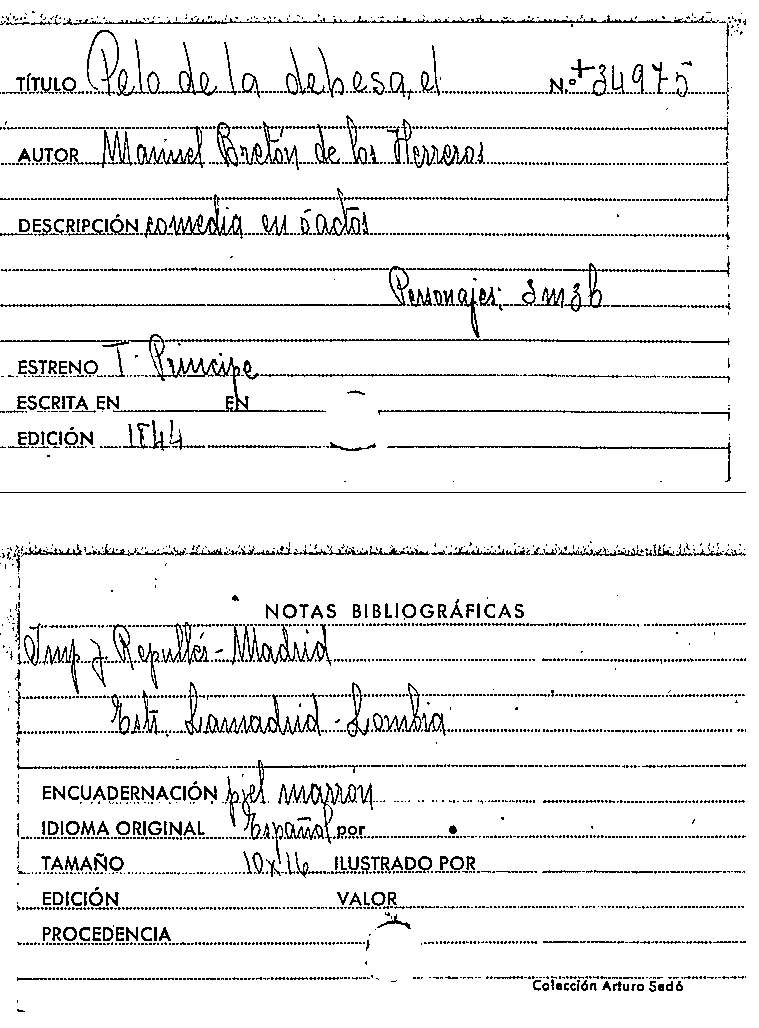 TÍTULO Pelo de la dehesa, el N.º + 34975
AUTOR Manuel Bretón de los Herreros
DESCRIPCIÓN comedia en 5 actos
Personajes: 3m3h
ESTRENO T. Principe
ESCRITA EN EN
EDICIÓN 1844
NOTAS BIBLIOGRÁFICAS
Imp J. Repullés - Madrid
Estr. Lamadrid - Lombia
ENCUADERNACIÓN piel marrón
IDIOMA ORIGINAL Español por
TAMAÑO 10x16 ILUSTRADO POR
EDICIÓN VALOR
PROCEDENCIA
Colección Arturo Sedó